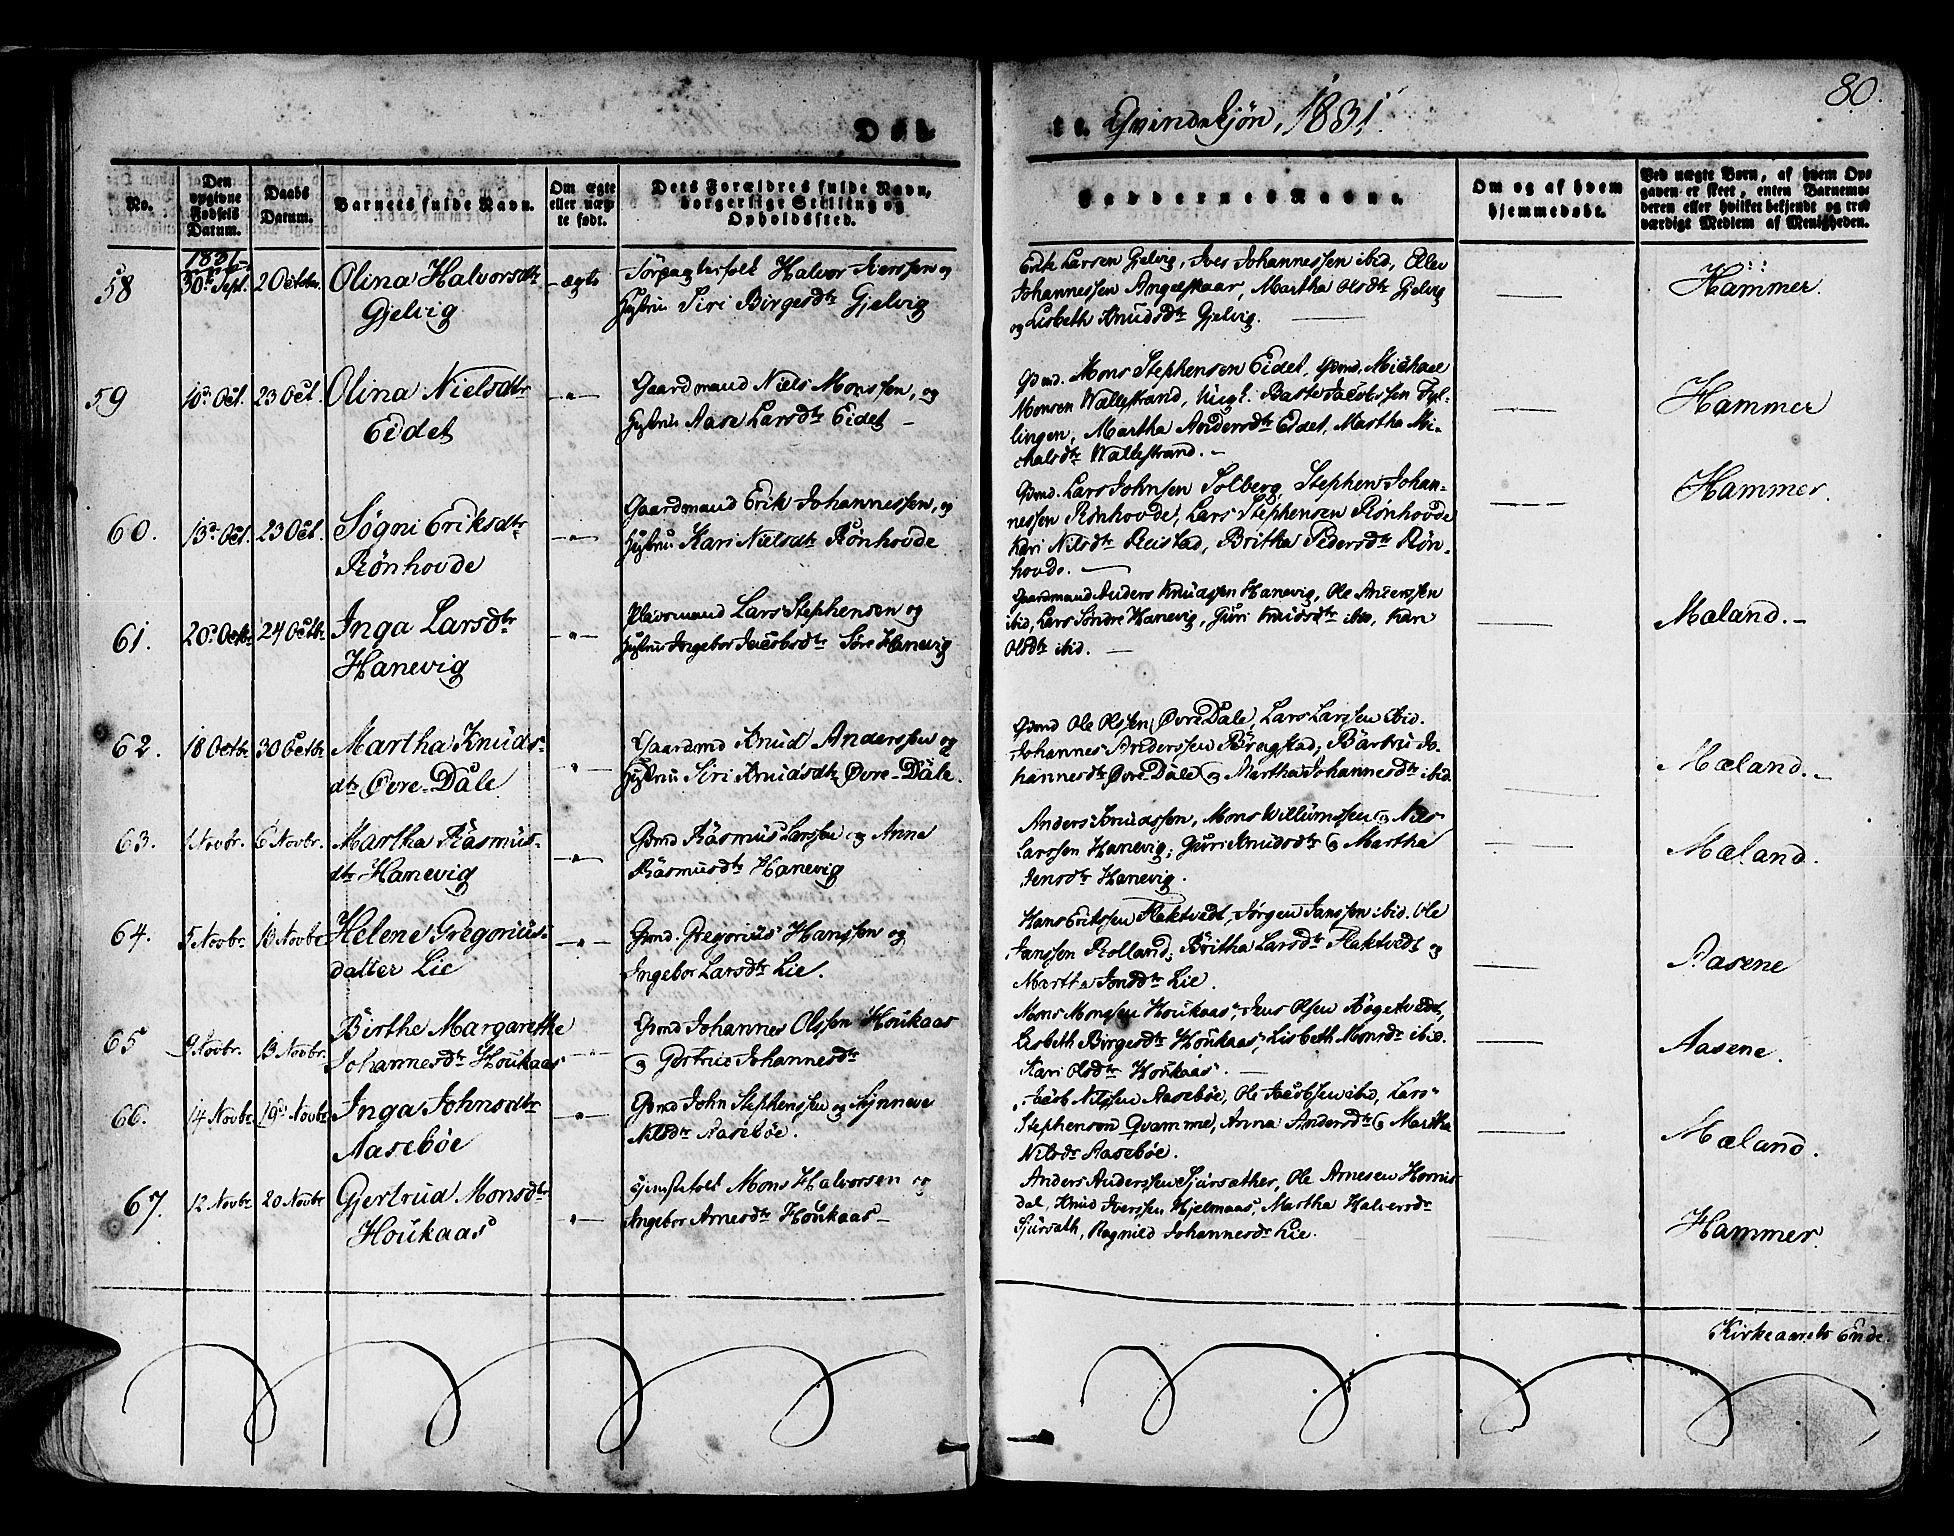 80.
Døb
te. Qvindekjøn, 1831.
No.
Den opgivne Fødsels Datum.
Daabs Datum.
Barnets fulde Navn.
Om ægte eller uægte født.
Dets Forældres fulde Navn, borgerlige Stilling og Opholdssted.
Faddernes Navne.
Om og af hvem hjemmedøbt.
Ved uægte Børn, af hvem Opgaven er skeet, enten Barnemoderen eller hvilket bekjendt og troværdigt Medlem af Menigheden.
1831
58 30te Sept. 2 Octobr. Olina Halvorsdtr ægte
Halvor Iverssen og
Gjelvig
Hustrue Siri Birgesdtr Gjelvig
Erik Larsen Gjelvig, Ives Johannessen ibid, Eller
Johannessen Angelskaar, Martha Olsdtr Gjelvig
og Lisbeth Knudsdtr Gjelvig.
Hammer.
59 10d Oct. 23 Oct. Olina Nielsdtr -"-
Eidet
Gaardmand Niels Monssen, og
Hustrue Aase Larsdtr Eidet -
Gdmd. Mons Stephensen Eidet, Gdmd. Michael
Monsen Wallestrand, Ungk. Baste Jacobssen Tyl-
lingen, Martha Andersdtr Eidet, Martha Mi-
chalsdtr Wallestrand. -
Hammer
60. 13d Oct. 23 Oct. Søgni Eriksdtr -"-
Rønhovde
Gaardmand Erik Johannessen, og
Hustrue Kari Nielsdtr Rønhovde
Gdmd. Lars Johnsen Solberg, Stephen Johan-
nessen Rønhovde, Lars Stephensen Rønhovde
Kari Nilsdtr Reistad, Britha Pedersdtr Røn-
hovde.
Hammer.
61. 20d Octb. 24 Octb. Inga Larsdtr -"-
Hanevig
Pladsmand Lars Stephensen og
Hustrue Ingebor Jacobsdtr Søre Hanevig
Gaardmand Anders Knudssen Hanevig, Ole Anderssen
ibid, Lars Søndre Hanevig, Guri Knudsdtr ibid, Kari
Olsdtr ibid.
Mæland. -
62. 18 Octbr. 30 Octbr. Martha Knuds- -"-
dtr Øvre-Dale
Gaardmd Knud Anderssen og
Hustrue Siri Knudsdtr Øvre-Dale.
Gdmd Ole Olssen Øvre Dale, Lars Larssen ibid.
Johannes Anderssen Bragstad, Bartru Jo-
hannesdtr Øvre Dale og Martha Johannesdtr ibid.
Mæland. -
63. 1 Novbr. 6 Novbr. Martha Rasmus- -"-
dtr Hanevig
Gdmd Rasmus Larssen og Anna
Rasmusdtr Hanevig
Anders Knudssen, Mons Willumssen og Nils
Larssen Hanevig; Guri Knudsdtr og Martha
Jensdtr Hanevig.
Mæland.
64. 5 Novbr. 13 Novbr. Helene Gregorius- -"-
datter Lie
Gdmd. Gregorius Hanssen og
Ingebor Larsdtr Lie.
Hans Erikssen Flaktvedt, Jørgen Janssen ibid. Ole
Janssen Rolland; Britha Larsdtr Flaktvedt og
Martha Jonsdtr Lie.
Aasene
65 9 Novbr. 13 Novbr. Birthe Margarethe -"-
Johannesdtr Houkaas
Gdmd Johannes Olssen Houkaas
og Gertrue Johannesdtr
Mons Monssen Houkaas, Jens Olsen Bøgetvedt,
Lisbeth Birgesdtr Houkaas, Lisbeth Monsdr ibid.
Kari Olsdtr Houkaas.
Aasene.
66. 14 Novbr 19d Novbr Inga Johnsdtr -"-
Aasebøe
Gdmd John Stephenssen og Synneve
Nilsdtr Aasebøe.
Jacob Nilssen Aasebøe, Ole Jacobsen ibid, Lars
Stephensen Qvamme, Anna Andersdtr og Martha
Nilsdr Aasebøe.
Mæland.
67. 12 Novbr 20 Novbr Gjertrud Monsdtr -"-
Houkaas
Tjenestefolk Mons Halvorsen og
Ingebor Arnesdtr Houkaas -
Anders Anderssen Sjursæther, Ole Arnesen
dal, Knud Iverssen Hjelmaas, Martha Halversdr
Sjursath, Ragnild Johannesdr Lie.
Hammer.
Kirkeaarets Ende.